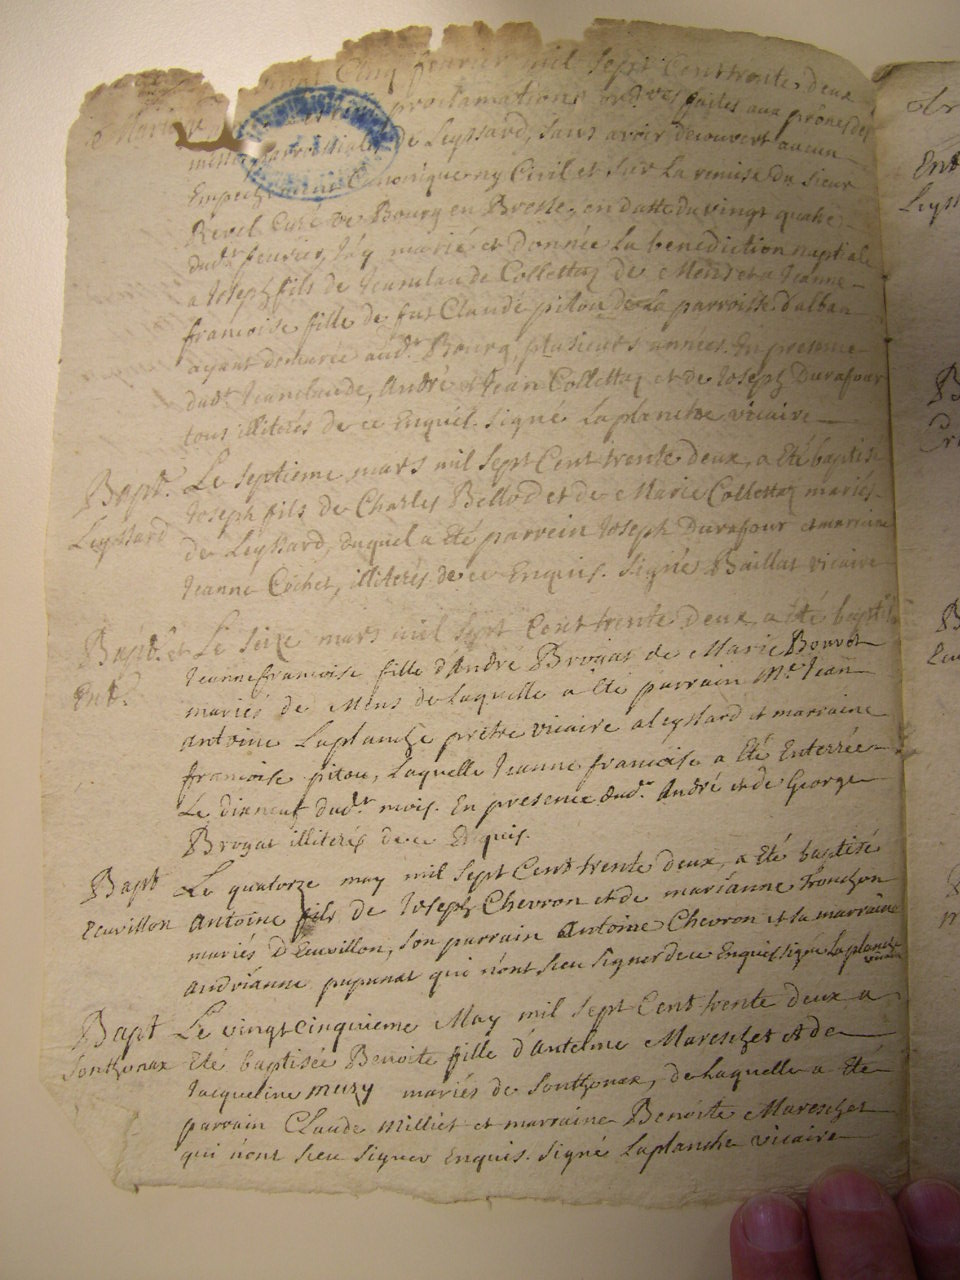 Cinq fevrier mil sept Cent trente deux
Mariage proclamations ord.res faites aux prônes des
messes parroissiales de Leyssard, sans avoir decouvert aucun
Empechement Canonique ny Civil et sur La remise du sieur
Revel Curé de Bourg en Bresse, en datte du vingt quatre
dud.t fevrier, J'ay marié et donnée La benediction nuptiale
a Joseph fils de Jeanclaude Collettaz de Mens et a Jeanne
francoise fille de fut Claude pitou de La parroisse d'alban
ayant demurée aud.t Bourg, plusieurs années. En presence
dud.t Jeanclaude, André et Jean Collettaz et de Joseph Durafour
tous illiterés de ce Enquis. signé Laplanche vicaire
Bapt. Le septieme mars mil sept Cent trente deux, a Eté baptisé
Joseph fils de Charles Bellod et de Marie Collettaz mariés
Leyssard de Leyssard, duquel a Eté parrein Joseph Durafour et marraine
Jeanne Cochet, illiterés de ce Enquis. signé Baillat vicaire
Bapt. et Le seize mars mil sept Cent trente deux, a Eté bapt.
Jeannefrancoise fille d'André Brogat de Marie
Ent. mariés de Mens de Laquelle a Eté parrain M.e Jean
antoine Laplanche prêtre vicaire a leyssard et marraine
francoise pitou, Laquelle Jeanne francoise a Eté Enterrée
Le dixneuf dud.t mois. En presence dud.t André et de George
Brogat illiterés de ce Enquis.
Bapt Le quatorze may mil sept Cent trente deux, a Eté baptisé
Leuvillon antoine fils de Joseph Chevron et de marianne Tronchon
mariés D Leuvillon, son parrain antoine Chevron et sa marraine
andrianne pupunat qui n'ont sceu signer de ce Enquis signé Laplanche
vicaire
Bapt Le vingt cinquieme May mil sept Cent trente deux a
Sonthonax Eté baptisée Benoite fille d'antelme Mareschet et de
Jacqueline muzy mariés de Sonthonax, de Laquelle a Eté
parrain Claude Milliet et marraine Benoite Mareschet
qui n'ont sceu signer Enquis. signé Laplanche vicaire